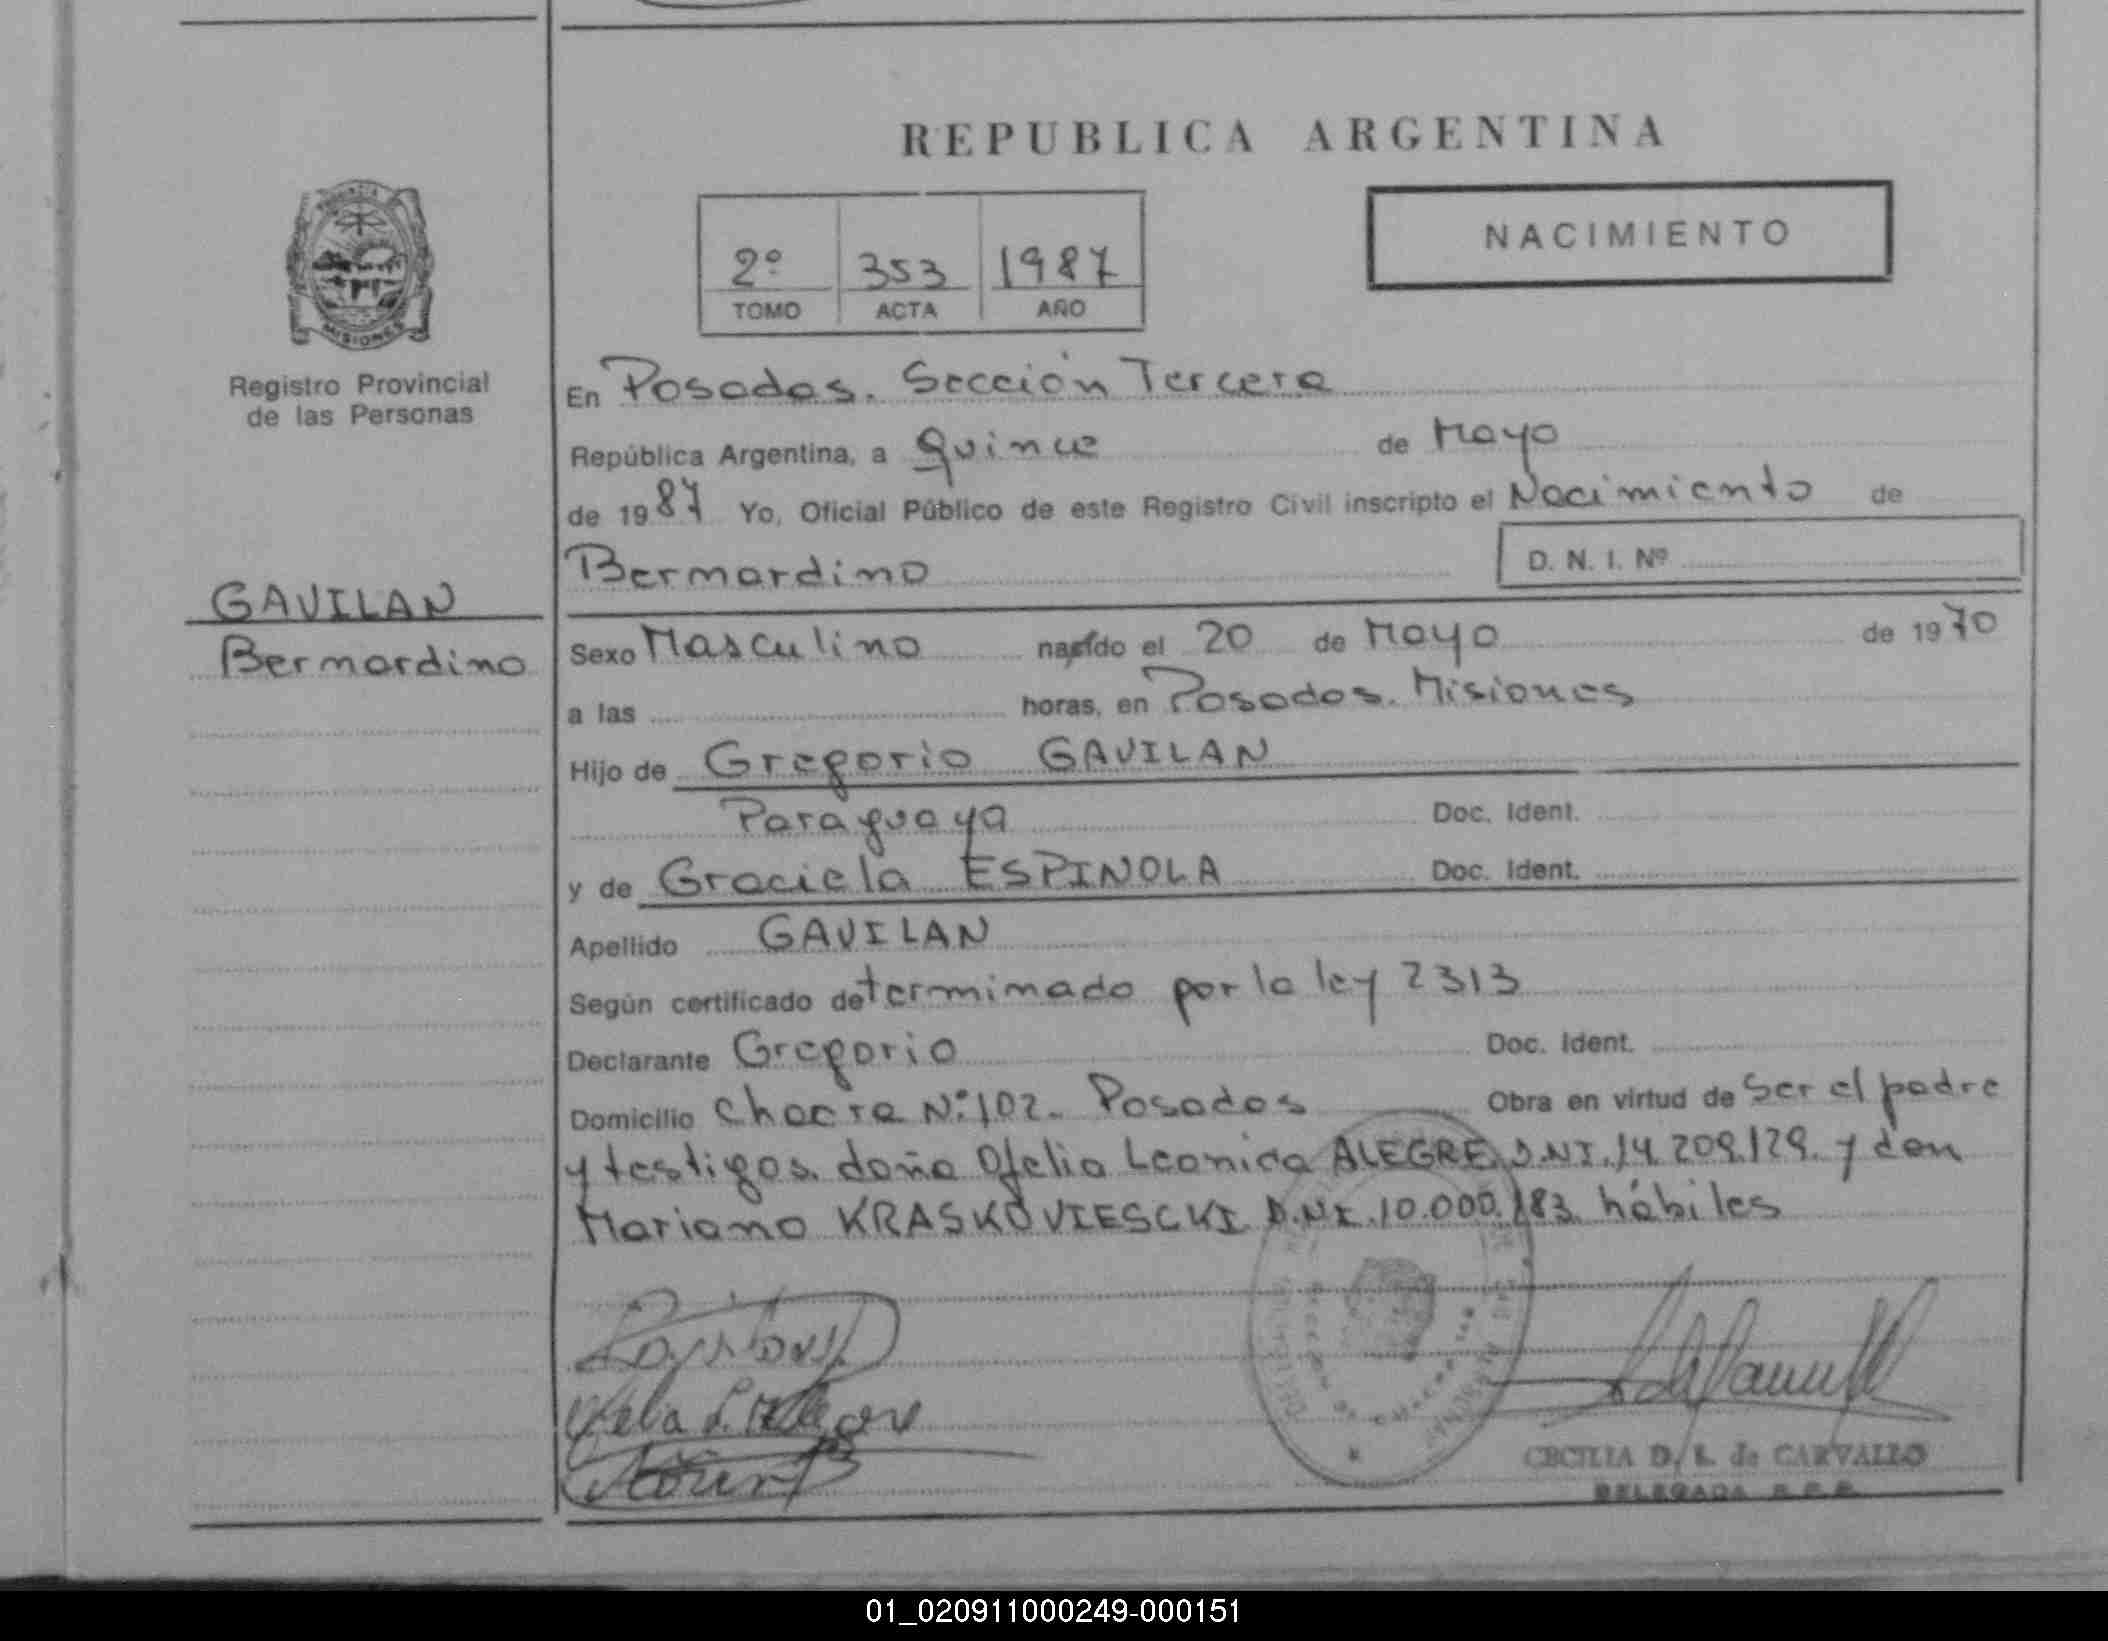 REPUBLICA ARGENTINA
NACIMIENTO
2º 353 1987
TOMO ACTA AÑO
MISIONES
Registro Provincial
de las Personas
GAVILAN
Bernardino
En Posadas. Sección Tercera
República Argentina, a Quince de Mayo
de 1987 Yo, Oficial Público de este Registro Civil inscripto el Nacimiento de
Bernardino
D. N. I. Nº
Sexo Masculino nacido el 20 de Mayo de 1970
a las horas, en Posadas. Misiones
Hijo de Gregorio GAVILAN
Paraguaya Doc. Ident.
y de Graciela ESPINOLA Doc. Ident.
Apellido GAVILAN
Según certificado determinado por la ley 2313
Declarante Gregorio Doc. Ident.
Domicilio Chacra Nº:102. Posadas Obra en virtud de Ser el padre
y testigos. doña Ofelia Leonida ALEGRE D.NI.14.209.129. y don
Mariano KRASKOVIESCKI D.NI.10.000.183. hábiles
CECILIA D. L. de CARVALLO
DELEGADA R.P.P.
01_020911000249-000151